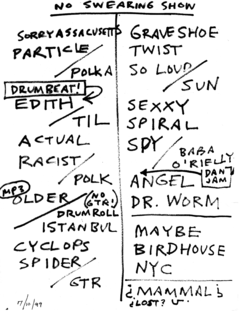 NO SWEARING SHOW
SORRYASSACUSETTS
PARTICLE
POLKA
DRUMBEAT!
EDITH
TIL
ACTUAL
RACIST
POLK
MP3
OLDER
(NO GTR!)
DRUMROLL
ISTANBUL
CYCLOPS
SPIDER
GTR
GRAVESHOE
TWIST
SO LOUD
SUN
SEXXY
SPIRAL
SPY
BABA
O'RIELLY
ANGEL
DAN
JAM
DR. WORM
MAYBE
BIRDHOUSE
NYC
¿MAMMAL¿
¿LOST?